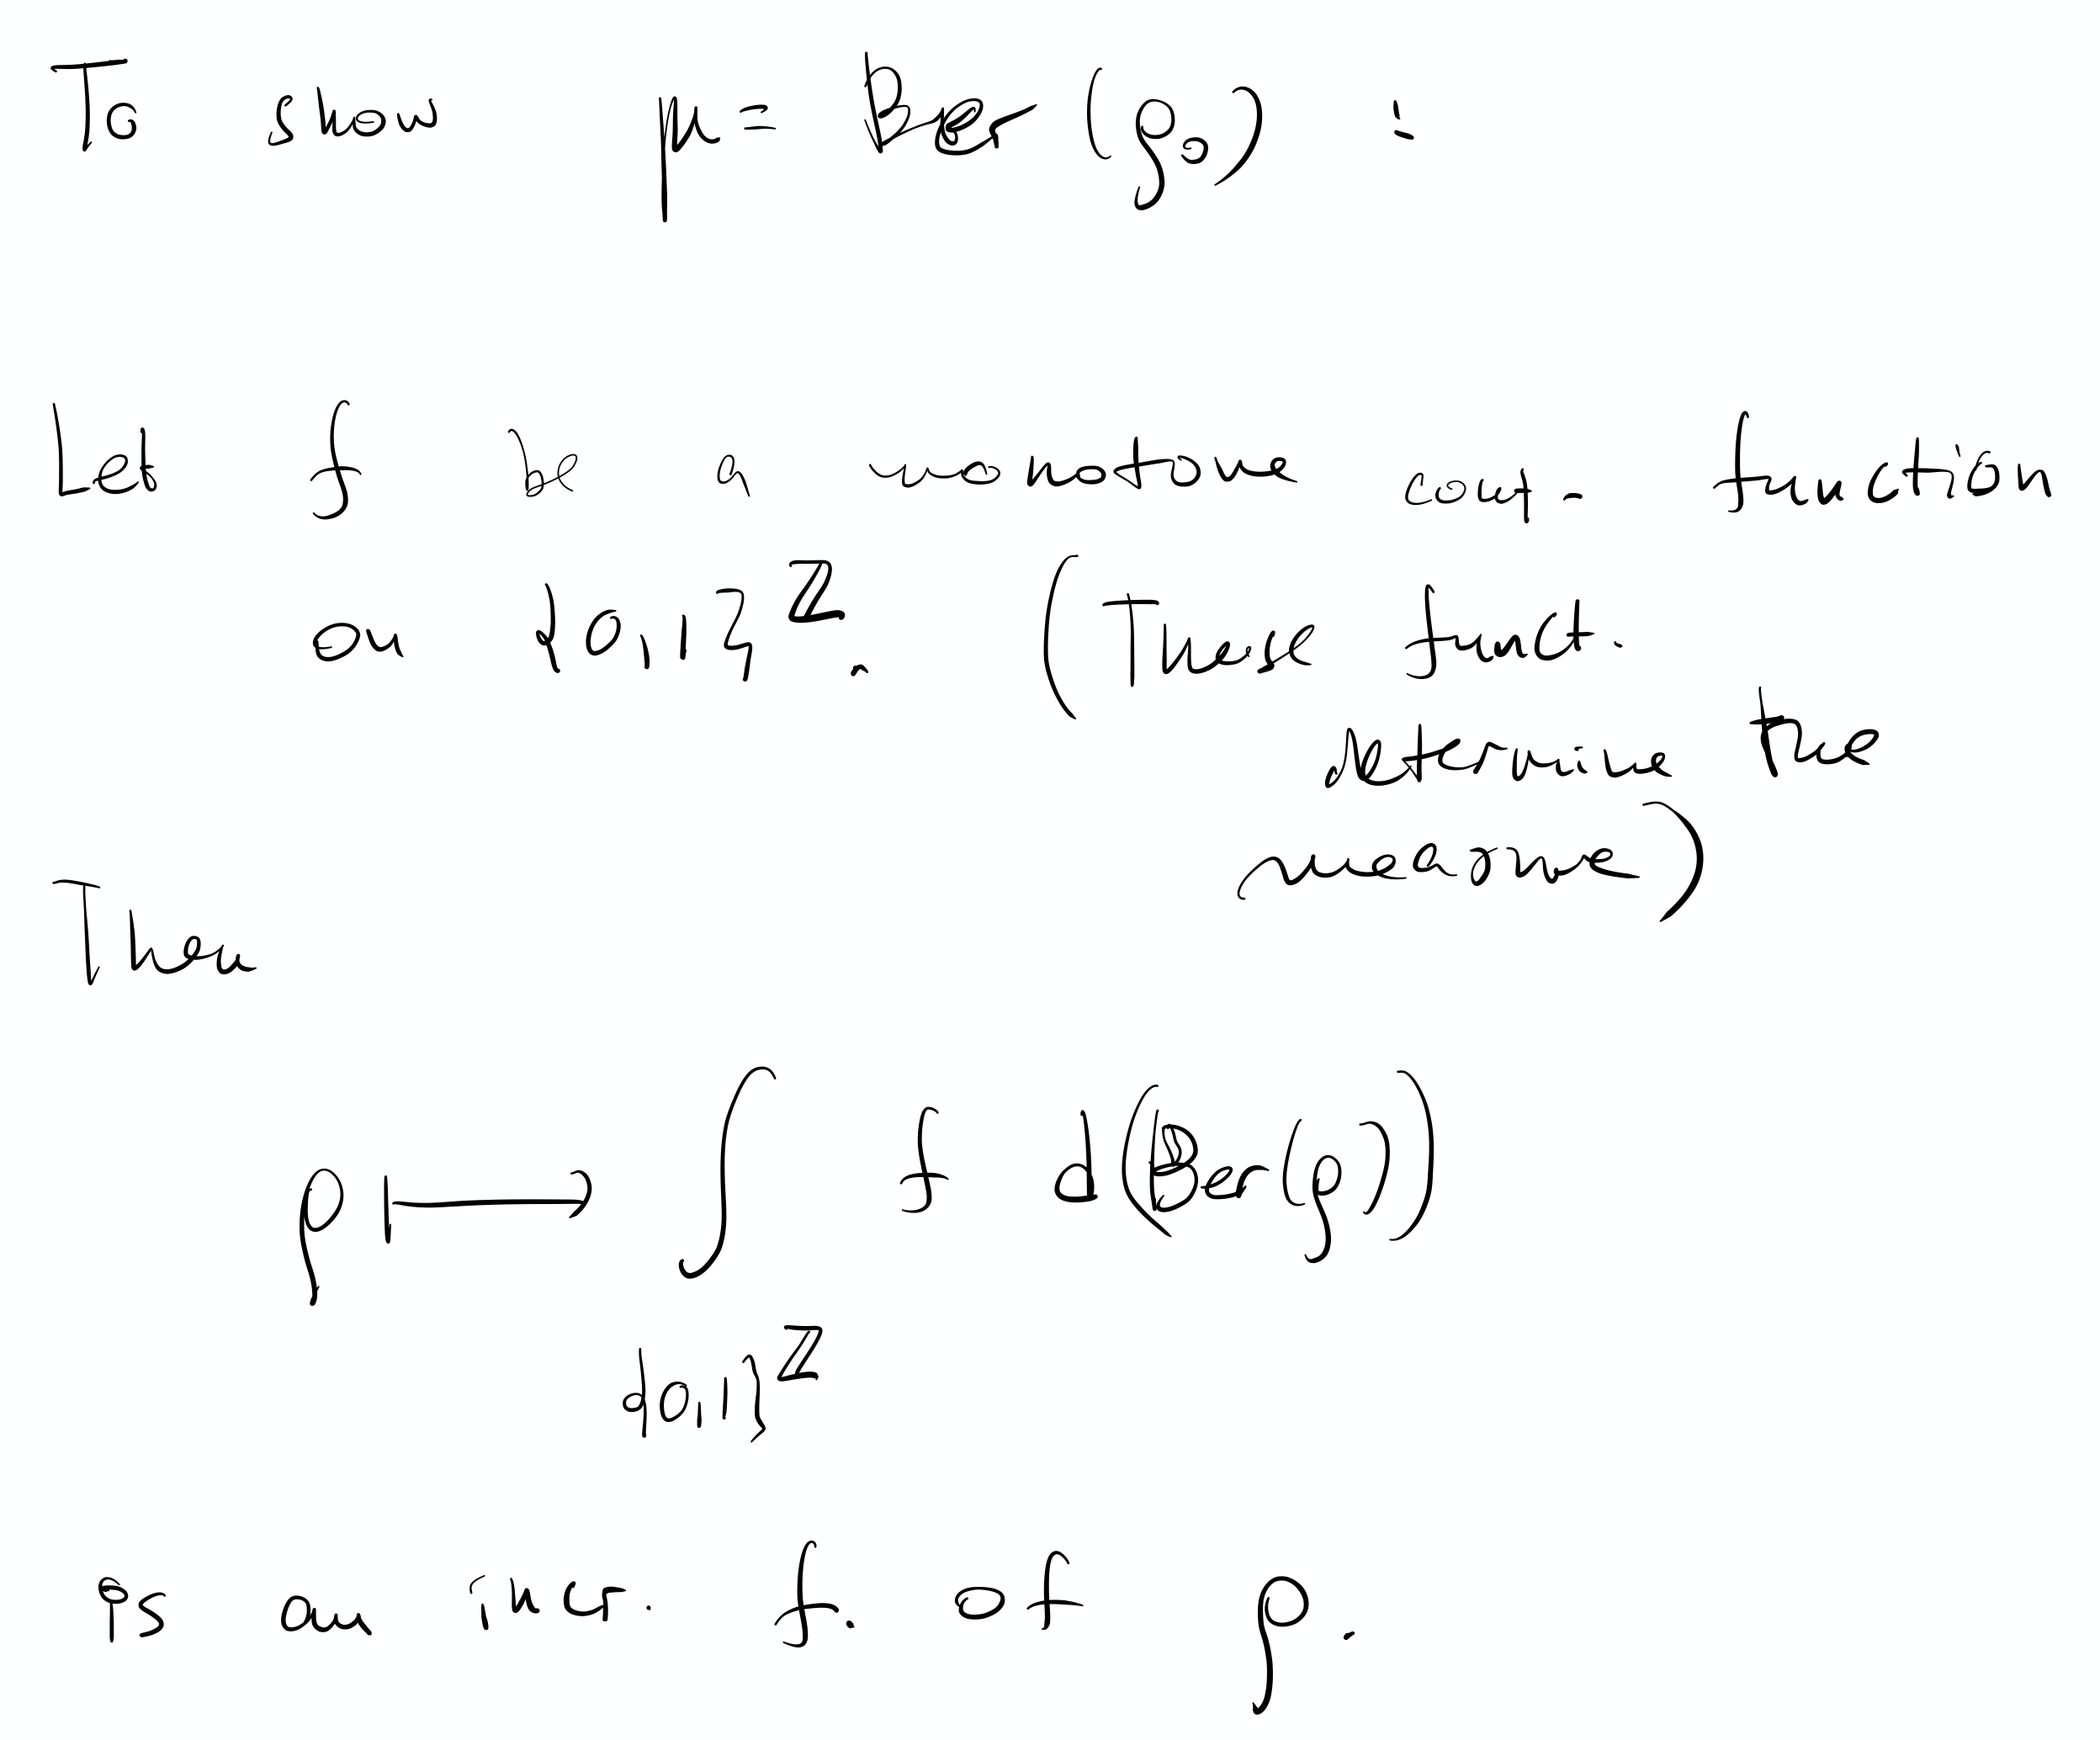 To show μ = Ber(ρ₀) :
Let f be a monotone cont. function
on {0,1}^ℤ. (These funct.
determine the
measure)
Then
ρ ↦ ∫ f d(Ber(ρ))
{0,1}^ℤ
is an incr. f. of ρ.